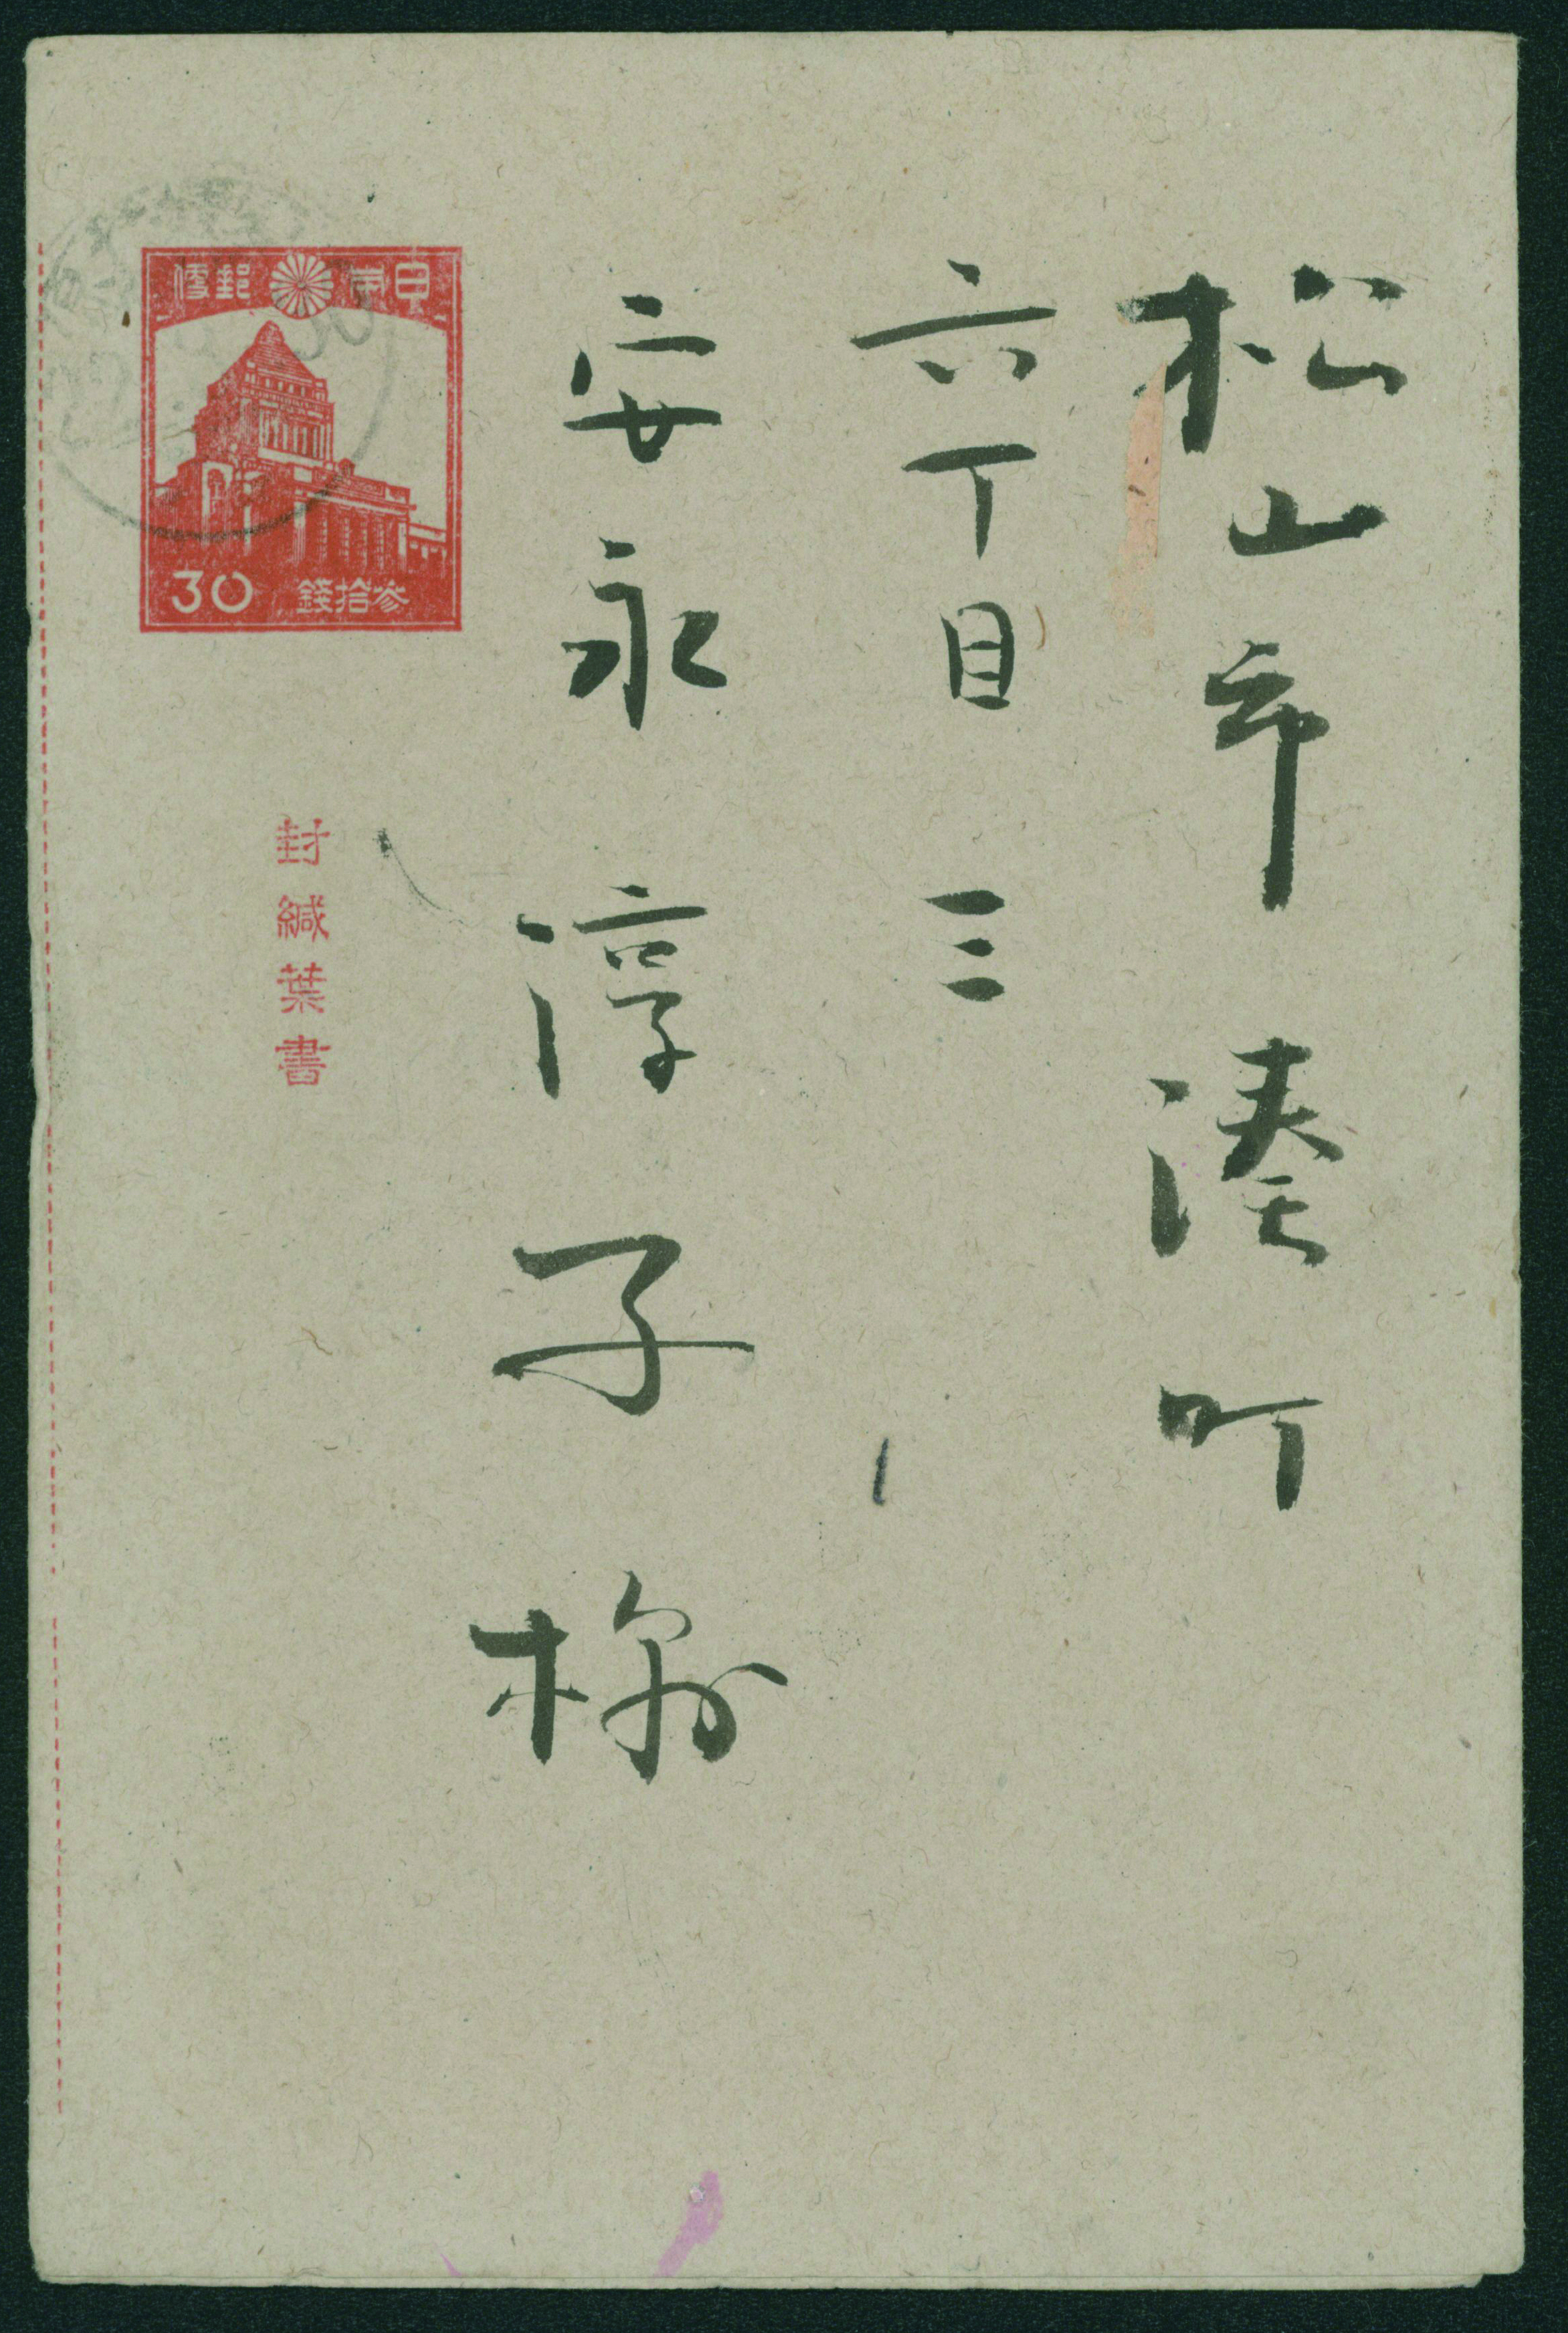 松山市湊町
六丁目三
安永淳子様
日本郵便
30 参拾錢
封緘葉書